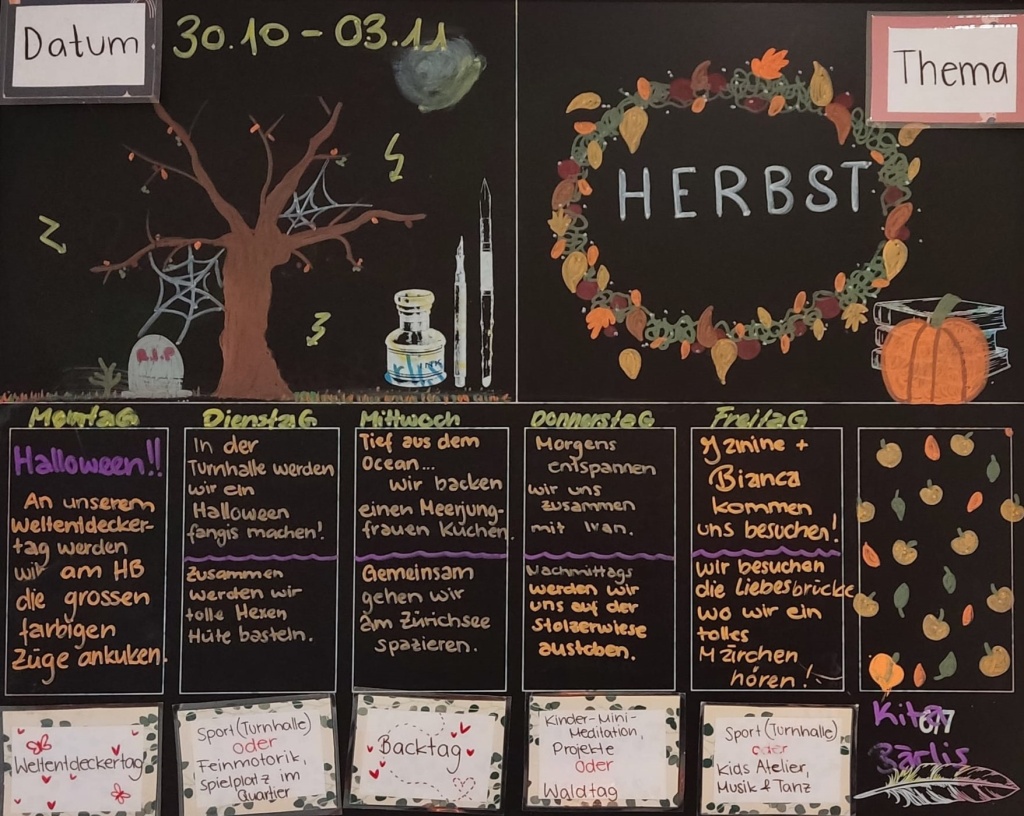 Datum
30.10 - 03.11
Thema
HERBST
R.I.P
Montag
Halloween!!
An unserem
Weltentdecker-
tag werden
wir am HB
die grossen
farbigen
Züge ankuken.
Weltentdeckertag
Dienstag
In der
Turnhalle werden
wir ein
Halloween
fangis machen!
Zusammen
werden wir
tolle Hexen
Hüte basteln.
Sport (Turnhalle)
oder
Feinmotorik,
Spielplatz im
Quartier
Mittwoch
Tief aus dem
Ocean...
wir backen
einen Meerjung-
frauen Kuchen.
Gemeinsam
gehen wir
am Zürichsee
spazieren.
Backtag
Donnerstag
Morgens
entspannen
wir uns
zusammen
mit Ivan.
Nachmittags
werden wir
uns auf der
Stolzerwiese
austoben.
Kinder-Mini-
Meditation,
Projekte
oder
Waldtag
Freitag
Yanine +
Bianca
kommen
uns besuchen!
Wir besuchen
die Liebesbrücke
wo wir ein
tolles
Märchen
hören!
Sport (Turnhalle)
oder
Kids Atelier,
Musik & Tanz
Kita
Bärlis